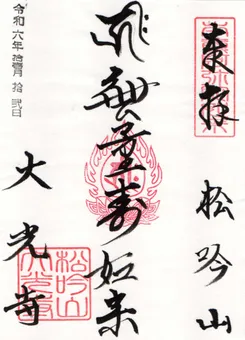 奉拝
松吟山
無量寿如来
大光寺
令和六年拾壹月拾貳日
松吟山
大光寺